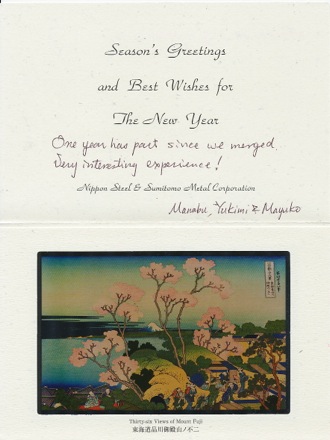 Season's Greetings
and Best Wishes for
The New Year
One year has past since we merged.
Very interesting experience!
Nippon Steel & Sumitomo Metal Corporation
Manabu, Yukimi & Mayuko
Thirty-six Views of Mount Fuji
東海道品川御殿山ノ不二